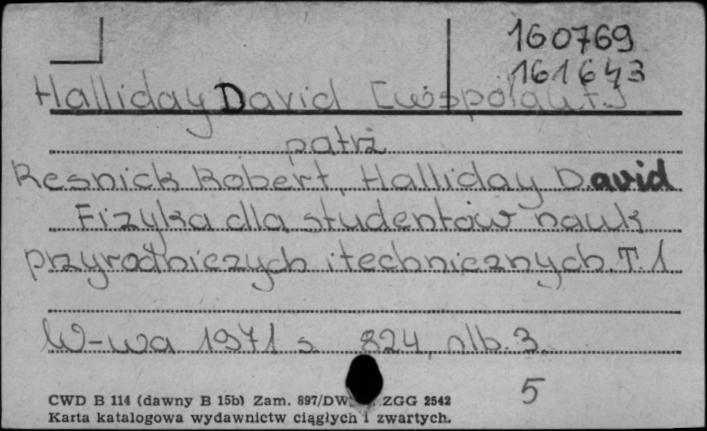 160769
161643
Halliday David [współaut.]
patrz
Resnick Robert, Halliday David
Fizyka dla studentów nauk
przyrodniczych i technicznych. T. 1
W-wa 1971 s. 824, nlb. 3.
5
CWD B 114 (dawny B 15b) Zam. 897/DW ZGG 2542
Karta katalogowa wydawnictw ciągłych i zwartych.